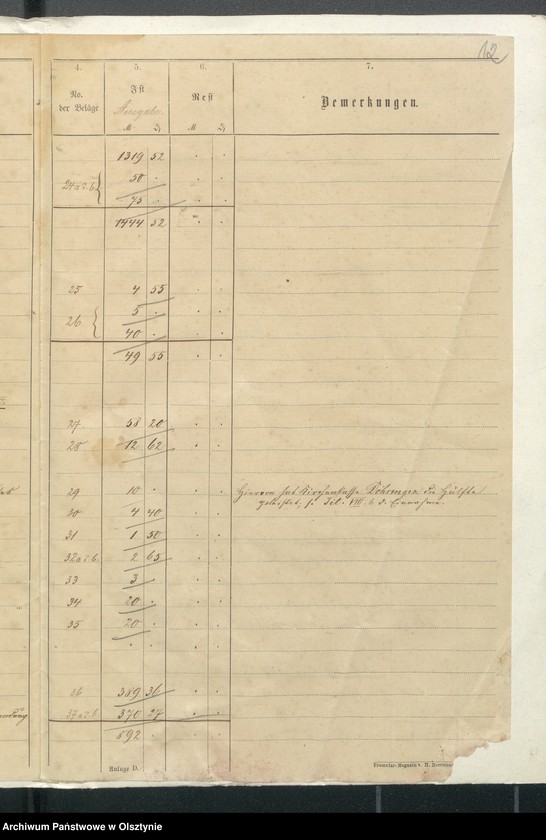 12
4. 5. 6. 7.
No. der Beläge Ist Ausgabe. Rest Bemerkungen.
M ₰ M ₰
1319 52 . .
24 a u. b. { 50 . . .
75 . . .
1444 52 . .
25 4 55 . .
26 { 5 . . .
40 . . .
49 55 . .
27 58 20 . .
28 12 62 . .
29 10 . . . Hiervon hat Kirchenkasse Döhringen die Hälfte
geleistet, s. Tit. VIII. 6 d. Einnahme.
30 4 40 . .
31 1 50 . .
32 a u. b. 2 65 . .
33 3 . . .
34 20 . . .
35 20 . . .
. . . .
36 389 36 . .
37 a u. b 370 27 . .
892 . . .
Anlage D.
Formular-Magazin v. H.
Archiwum Państwowe w Olsztynie